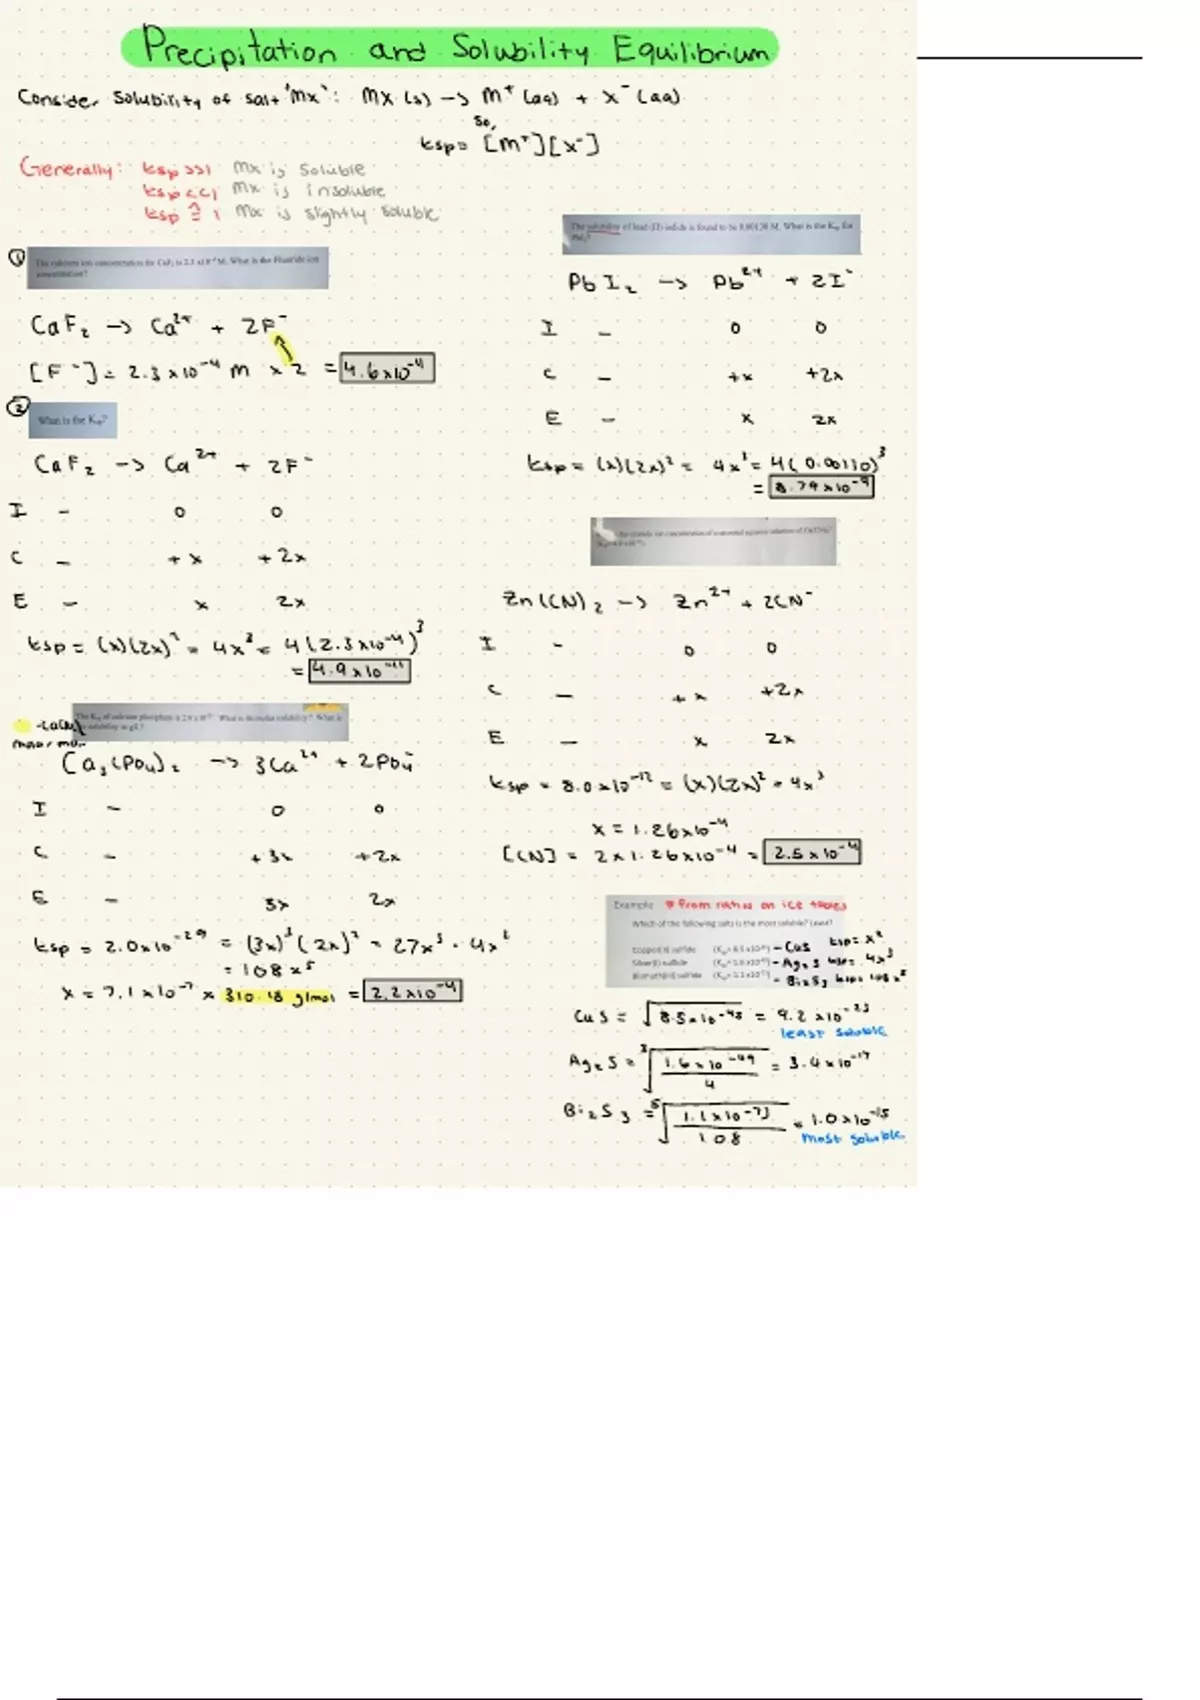 Precipitation and Solubility Equilibrium
Consider solubility of salt 'MX': MX (s) -> M⁺ (aq) + X⁻ (aq)
so,
ksp = [M⁺][X⁻]
Generally: ksp >>1 MX is soluble
ksp <<1 MX is insoluble
ksp ≅ 1 MX is slightly soluble
①
The calcium ion concentration for CaF₂ is 2.3 x10⁻⁴ M. What is the Fluoride ion
concentration?
CaF₂ -> Ca²⁺ + 2F⁻
[F⁻] = 2.3x10⁻⁴ M x 2 = 4.6x10⁻⁴
②
What is the Ksp?
CaF₂ -> Ca²⁺ + 2F⁻
I - 0 0
C - +x +2x
E - x 2x
ksp = (x)(2x)² = 4x³ = 4(2.3x10⁻⁴)³
= 4.9x10⁻¹¹
The Ksp of calcium phosphate is 2.0 x 10⁻²⁹. What is the molar solubility? What is
solubility in g/L?
Ca₃(PO₄)₂ -> 3Ca²⁺ + 2PO₄⁻
I - 0 0
C - +3x +2x
E - 3x 2x
ksp = 2.0x10⁻²⁹ = (3x)³(2x)² = 27x³ · 4x²
= 108x⁵
x = 7.1x10⁻⁷ x 310.18 g/mol = 2.2x10⁻⁴
The solubility of lead (II) iodide is found to be 0.00130 M. What is the Ksp for
PbI₂?
PbI₂ -> Pb²⁺ + 2I⁻
I - 0 0
C - +x +2x
E - x 2x
ksp = (x)(2x)² = 4x³ = 4(0.00130)³
= 8.79x10⁻⁹
the cyanide ion concentration of a saturated aqueous solution of Zn(CN)₂?
Zn(CN)₂ -> Zn²⁺ + 2CN⁻
I - 0 0
C - +x +2x
E - x 2x
ksp = 8.0x10⁻¹² = (x)(2x)² = 4x³
x = 1.26x10⁻⁴
[CN] = 2x1.26x10⁻⁴ = 2.5x10⁻⁴
Example * from ratios on ice tables
Which of the following salts is the most soluble? Least?
Copper(II) sulfide (Ksp = 8.5 x10⁻⁴⁵) - CuS ksp = x²
Silver(I) sulfide (Ksp = 1.6 x10⁻⁴⁹) - Ag₂S ksp = 4x³
Bismuth(III) sulfide (Ksp = 1.1 x10⁻⁷³) - Bi₂S₃ ksp = 108x⁵
CuS = √8.5x10⁻⁴⁵ = 9.2x10⁻²³
least soluble
Ag₂S = ³√1.6x10⁻⁴⁹/4 = 3.4x10⁻¹⁷
Bi₂S₃ = ⁵√1.1x10⁻⁷³/108 = 1.0x10⁻¹⁵
most soluble